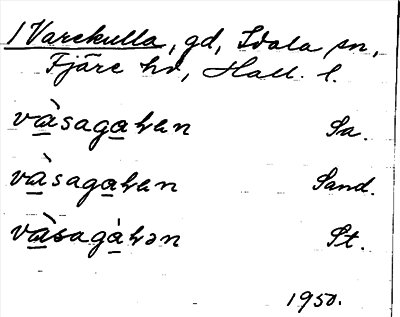 1 Varekulla, gd, Idala sn,
Fjäre hd, Hall. l.
vå̠̀saga̠han Sa.
và̠saga̠han Sand.
và̠saga̠hən St.
1950.